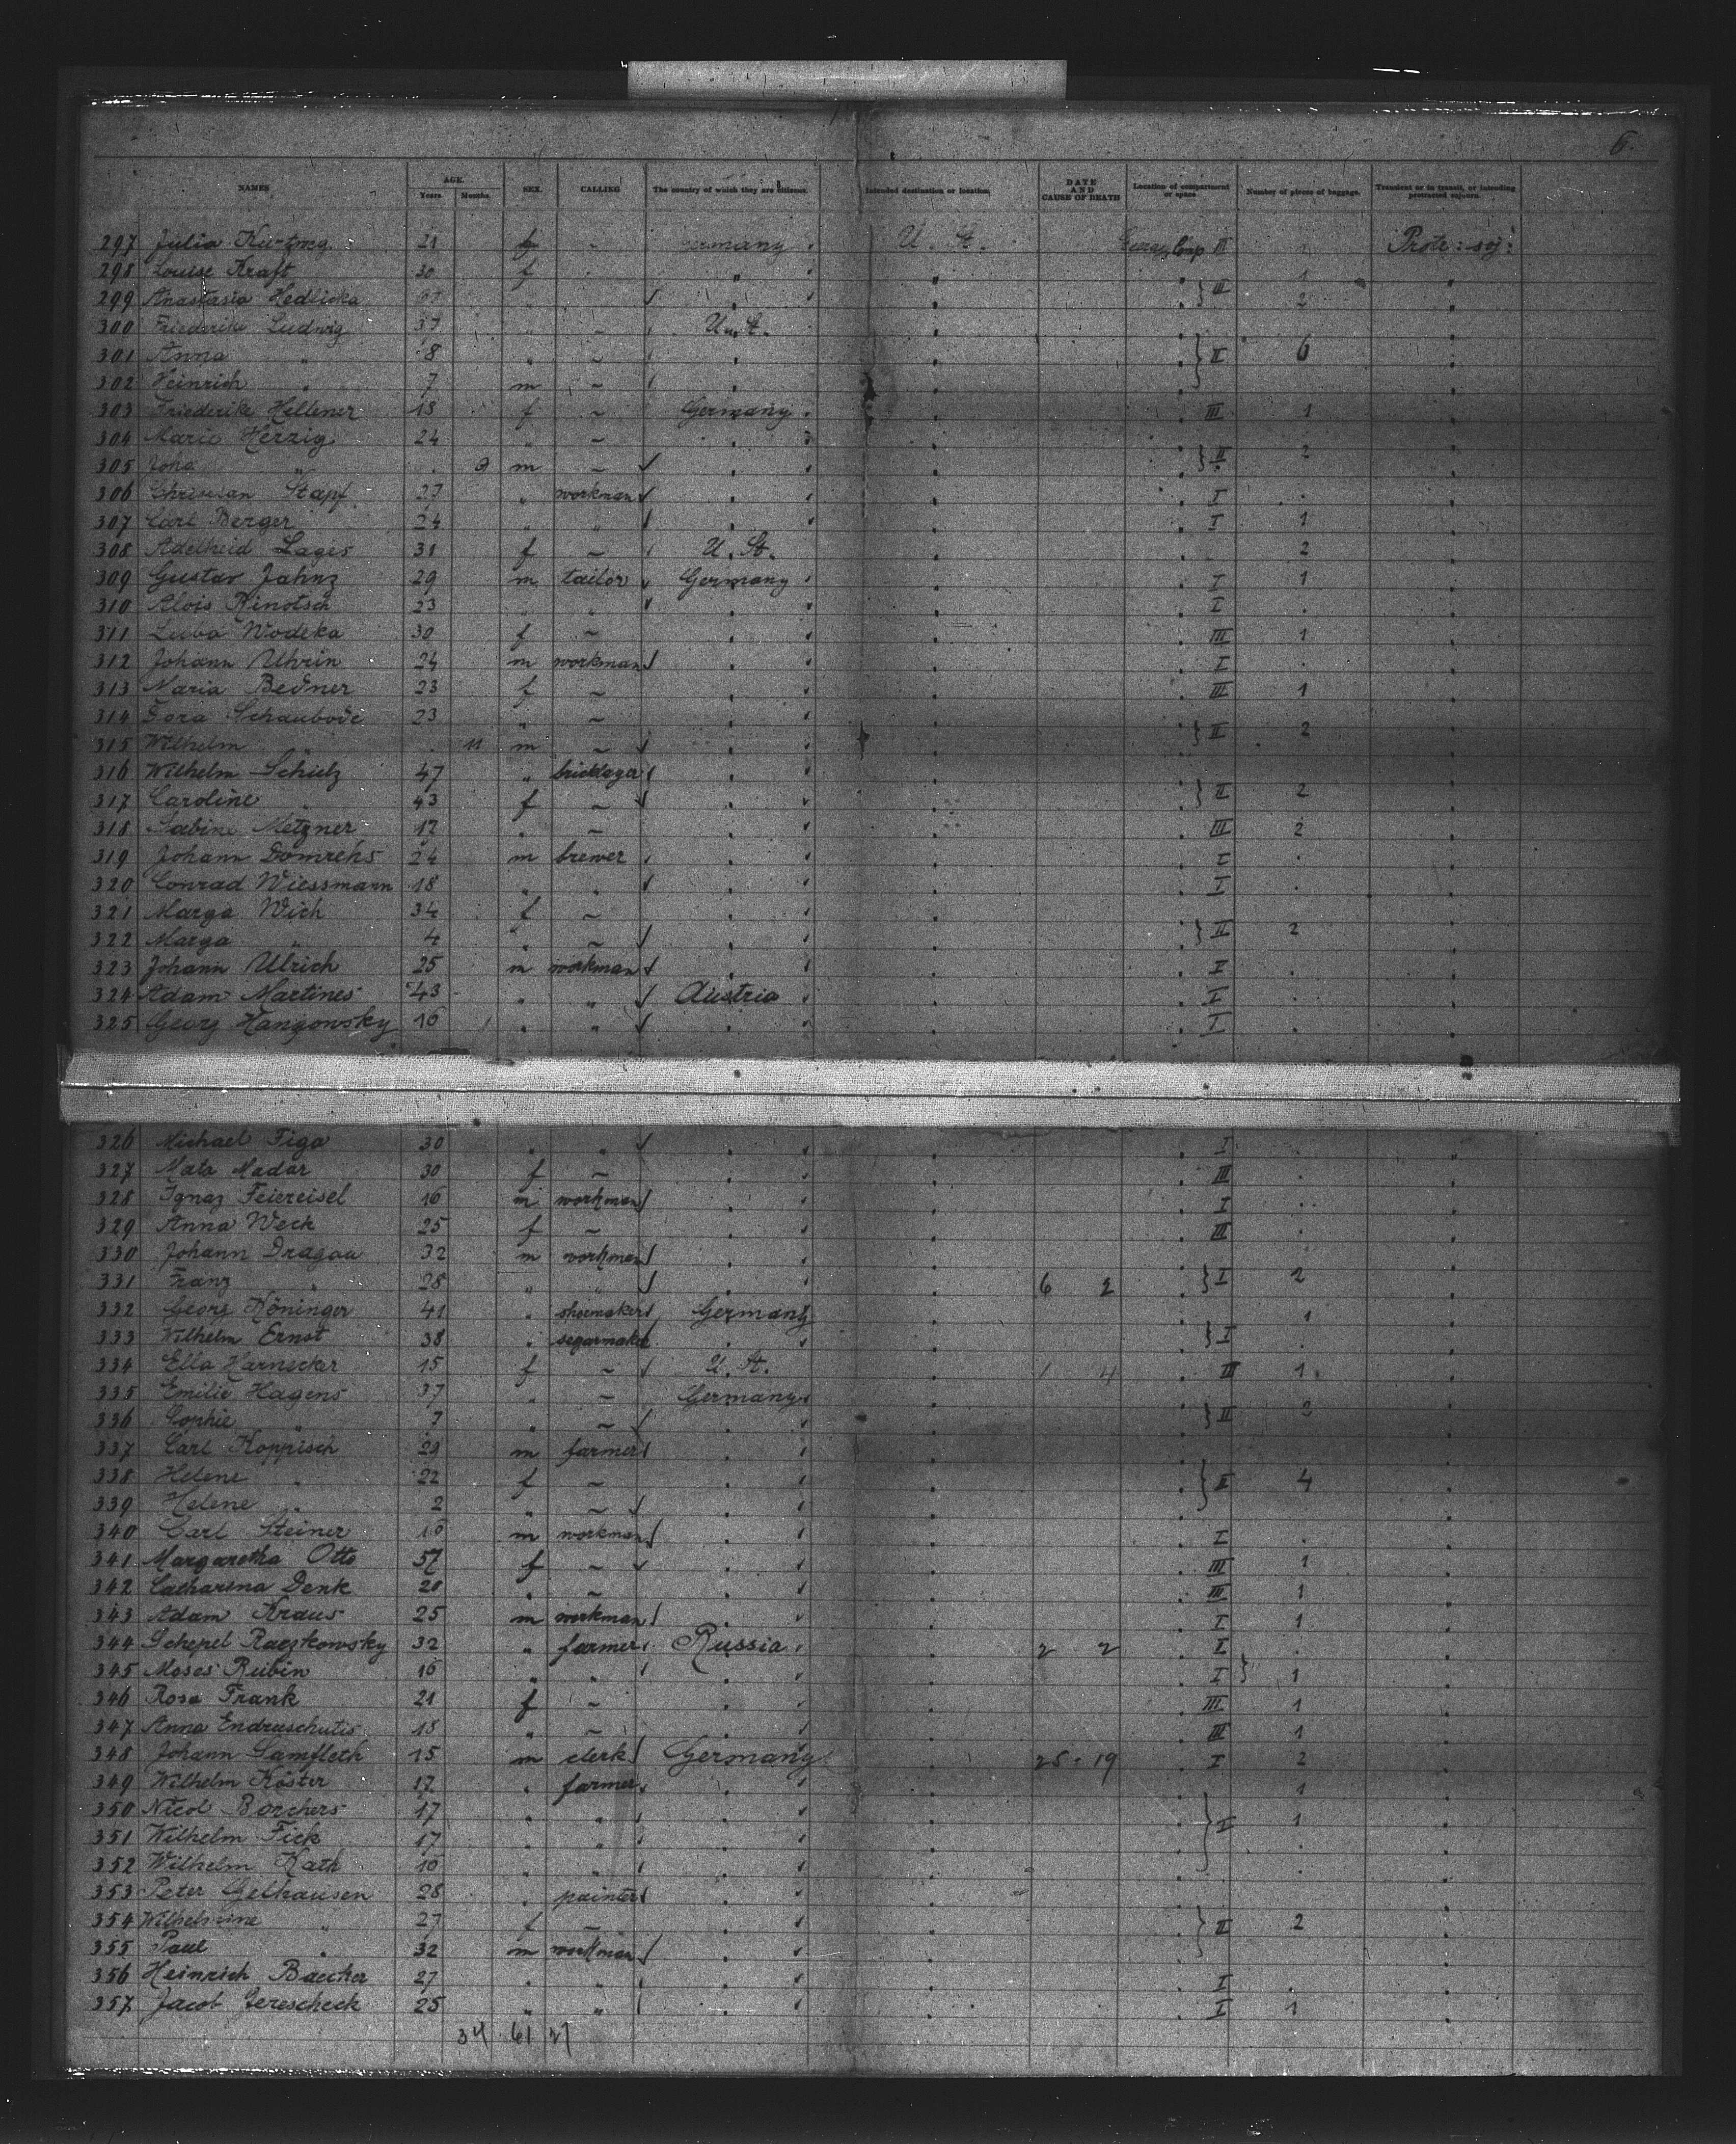 6.
NAMES AGE. Years. Months. SEX. CALLING The country of which they are citizens. Intended destination or location. DATE AND CAUSE OF DEATH Location of compartment or space Number of pieces of baggage. Transient or in transit, or intending protracted sojourn.
297 Julia 21 f - Germany U. St. Comp III 1 Protr: soj:
298 Louise Kraft 30 f " 1
299 Anastasia Hedlicka " } III 2
300 Friederike Ludwig 37 " - U. St.
301 Anna " 8 " - } II 6
302 Heinrich " 7 m -
303 Friederike Hellener 18 f - Germany III 1
304 Marie Herzig 24 " -
305 " 9 m - } II 2
306 Christian Stapf 27 " workman I
307 Carl Berger 24 " " I 1
308 Adelheid Lages 31 f - U. St. 2
309 Gustav Jahnz 29 m tailor Germany I 1
310 Alois Rinotsch 23 " " I
311 Luba Wodeka 30 f - III 1
312 Johann Uhrin 24 m workman I
313 Maria Bedner 23 f - III 1
314 Dora Schaubode 23 " -
315 Wilhelm 11 m - } II 2
316 Wilhelm Schulz 47 " bricklayer
317 Caroline " 43 f - } II 2
318 Sabine Metzner 17 " - III 2
319 Johann Domrehs 24 m brewer I
320 Conrad Wiessmann 18 " " I
321 Marga Wich 34 f -
322 Marga " 4 " - } II 2
323 Johann Ulrich 25 m workman I
324 Adam Martines 43 " " Austria I
325 Georg Hangowsky 16 " " I
326 Michael Figa 30 " " I
327 Mata Madar 30 f - III
328 Ignaz Feiereisel 16 m workman I
329 Anna Weck 25 f - III
330 Johann Dragau 32 m workman
331 Franz " 28 " " 6 2 } I 2
332 Georg Köninger 41 " shoemaker Germany 1
333 Wilhelm Ernst 38 " segarmaker } I
334 Ella Harnecker 15 f - U. St. 1 4 III 1
335 Emilie Hagens 37 " - Germany
336 Sophie " 7 " - } II 2
337 Carl Koppisch 29 m farmer
338 Helene " 22 f - } II 4
339 Helene " 2 " -
340 Carl Steiner 16 m workman I
341 Margaretha Otto 57 f - III 1
342 Catharina Denk 20 " - III 1
343 Adam Kraus 25 m workman I 1
344 Schepel Raczkowsky 32 " farmer Russia 2 2 I
345 Moses Rubin 16 " " I } 1
346 Rosa Frank 21 f - III 1
347 Anna Endruschutis 18 " - III 1
348 Johann Samfleth 15 m clerk Germany 25 - 19 I 2
349 Wilhelm Köster 17 " farmer 1
350 Nicol Borchers 17 " " } I 1
351 Wilhelm Fick 17 " "
352 Wilhelm Kath 16 " "
353 Peter Gelhausen 28 " painter
354 Wilhelmine " 27 f - } II 2
355 Paul " 32 m workman
356 Heinrich Baecker 27 " " I
357 Jacob Jerescheck 25 " " I 1
34 61 27